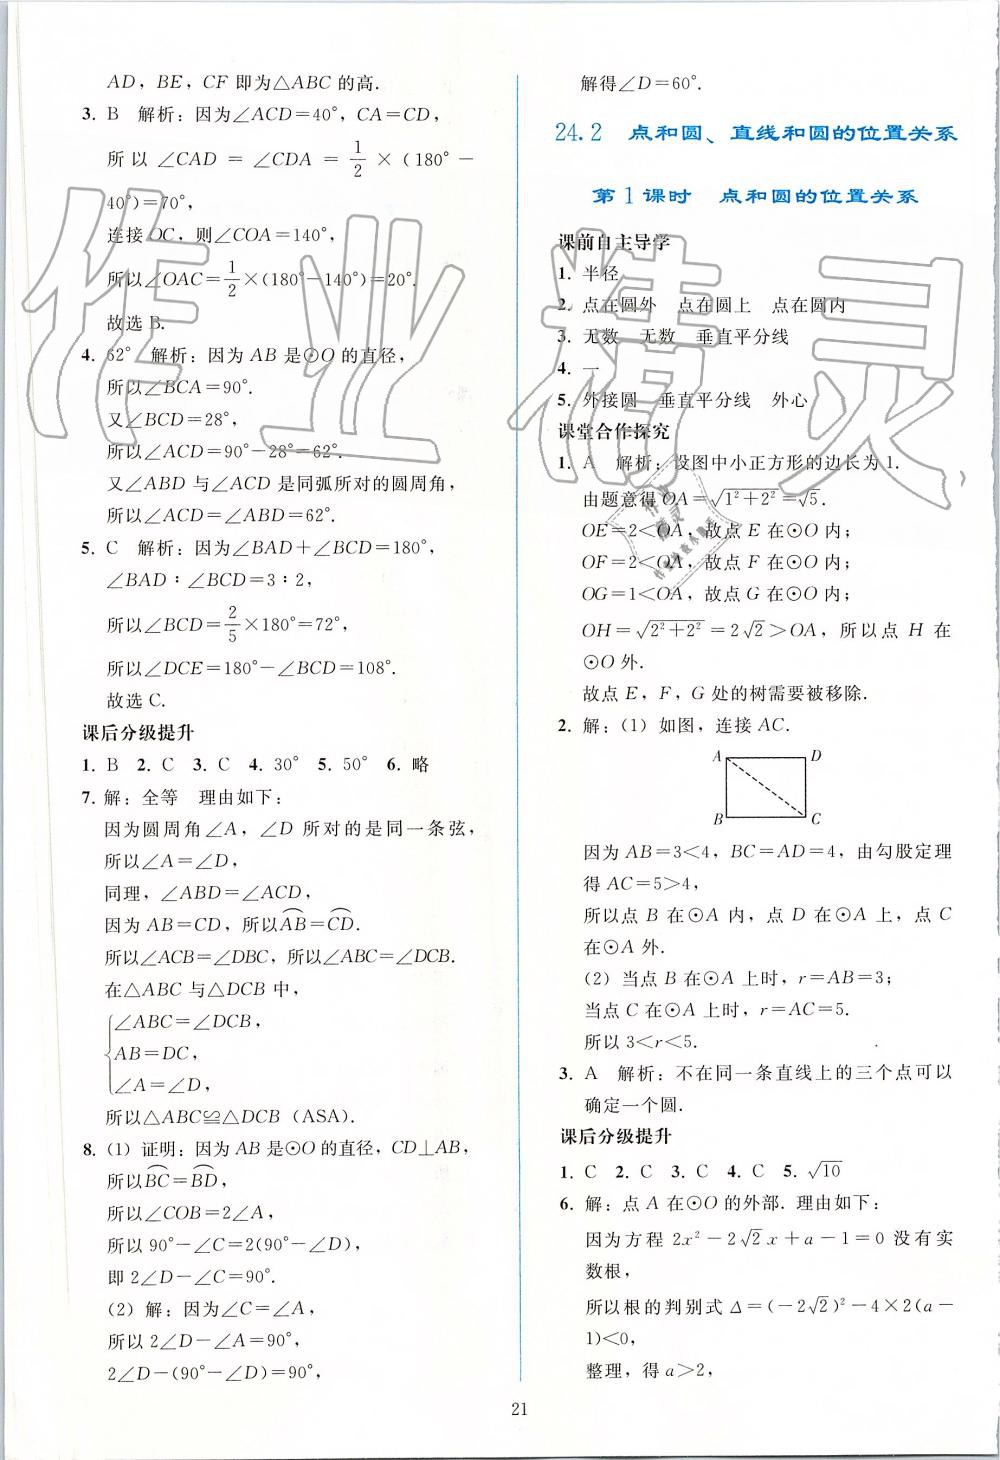 AD，BE，CF 即为△ABC 的高.
3. B　解析：因为∠ACD＝40°，CA＝CD，
所以∠CAD＝∠CDA＝1/2×(180°－
40°)＝70°，
连接OC，则∠COA＝140°，
所以∠OAC＝1/2×(180°－140°)＝20°.
故选 B.
4. 62°　解析：因为 AB 是⊙O 的直径，
所以∠BCA＝90°.
又∠BCD＝28°，
所以∠ACD＝90°－28°＝62°.
又∠ABD 与∠ACD 是同弧所对的圆周角，
所以∠ACD＝∠ABD＝62°.
5. C　解析：因为∠BAD＋∠BCD＝180°，
∠BAD∶∠BCD＝3∶2，
所以∠BCD＝2/5×180°＝72°，
所以∠DCE＝180°－∠BCD＝108°.
故选 C.
课后分级提升
1. B　2. C　3. C　4. 30°　5. 50°　6. 略
7. 解：全等　理由如下：
因为圆周角∠A，∠D 所对的是同一条弦，
所以∠A＝∠D，
同理，∠ABD＝∠ACD，
因为 AB＝CD，所以⌒AB＝⌒CD.
所以∠ACB＝∠DBC，所以∠ABC＝∠DCB.
在△ABC 与△DCB 中，
∠ABC＝∠DCB，
AB＝DC，
∠A＝∠D，
所以△ABC≌△DCB（ASA）.
8. （1）证明：因为 AB 是⊙O 的直径，CD⊥AB，
所以⌒BC＝⌒BD，
所以∠COB＝2∠A，
所以 90°－∠C＝2(90°－∠D)，
即 2∠D－∠C＝90°.
（2）解：因为∠C＝∠A，
所以 2∠D－∠A＝90°，
2∠D－(90°－∠D)＝90°，
解得∠D＝60°.
24.2　点和圆、直线和圆的位置关系
第 1 课时　点和圆的位置关系
课前自主导学
1. 半径
2. 点在圆外　点在圆上　点在圆内
3. 无数　无数　垂直平分线
4. 一
5. 外接圆　垂直平分线　外心
课堂合作探究
1. A　解析：设图中小正方形的边长为 1.
由题意得 OA＝√(1²＋2²)＝√5.
OE＝2＜OA，故点 E 在⊙O 内；
OF＝2＜OA，故点 F 在⊙O 内；
OG＝1＜OA，故点 G 在⊙O 内；
OH＝√(2²＋2²)＝2√2＞OA，所以点 H 在
⊙O 外.
故点 E，F，G 处的树需要被移除.
2. 解：（1）如图，连接 AC.
A　D
B　C
因为 AB＝3＜4，BC＝AD＝4，由勾股定理
得 AC＝5＞4，
所以点 B 在⊙A 内，点 D 在⊙A 上，点 C
在⊙A 外.
（2）当点 B 在⊙A 上时，r＝AB＝3；
当点 C 在⊙A 上时，r＝AC＝5.
所以 3＜r＜5.
3. A　解析：不在同一条直线上的三个点可以
确定一个圆.
课后分级提升
1. C　2. C　3. C　4. C　5. √10
6. 解：点 A 在⊙O 的外部. 理由如下：
因为方程 2x²－2√2x＋a－1＝0 没有实
数根，
所以根的判别式 Δ＝(－2√2)²－4×2(a－
1)＜0，
整理，得 a＞2，
21
作业精灵